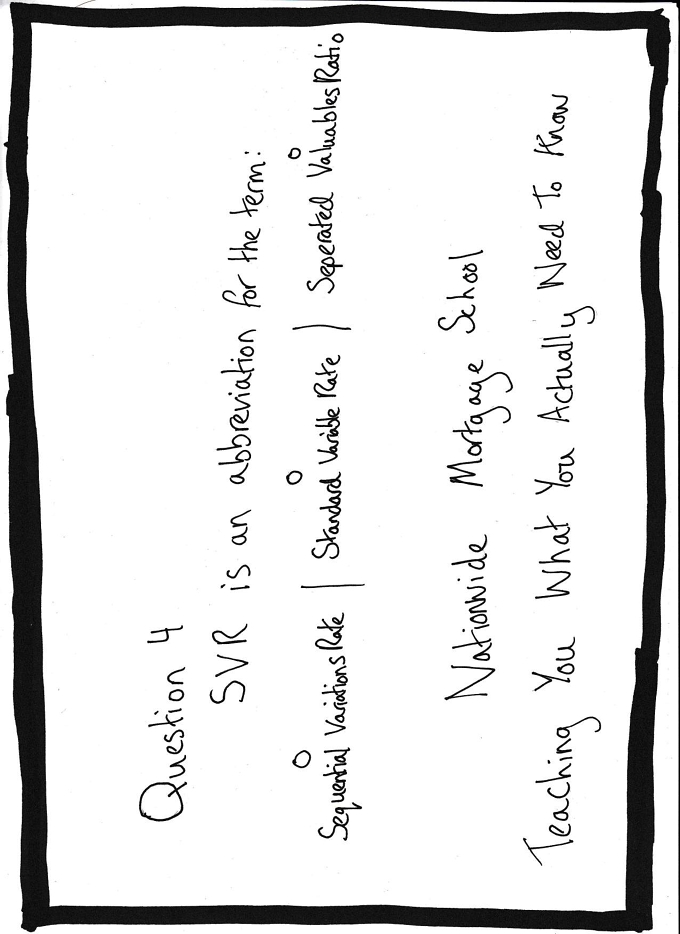 Question 4
SVR is an abbreviation for the term:
Sequential Variations Rate | Standard Variable Rate | Seperated Valuables Ratio
Nationwide Mortgage School
Teaching You What You Actually Need To Know